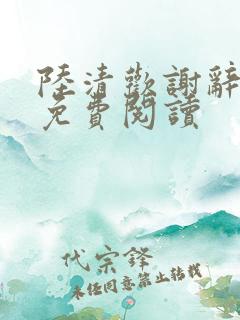 陸清歡謝辭
免費閱讀
代宗鋒
未经同意禁止转载